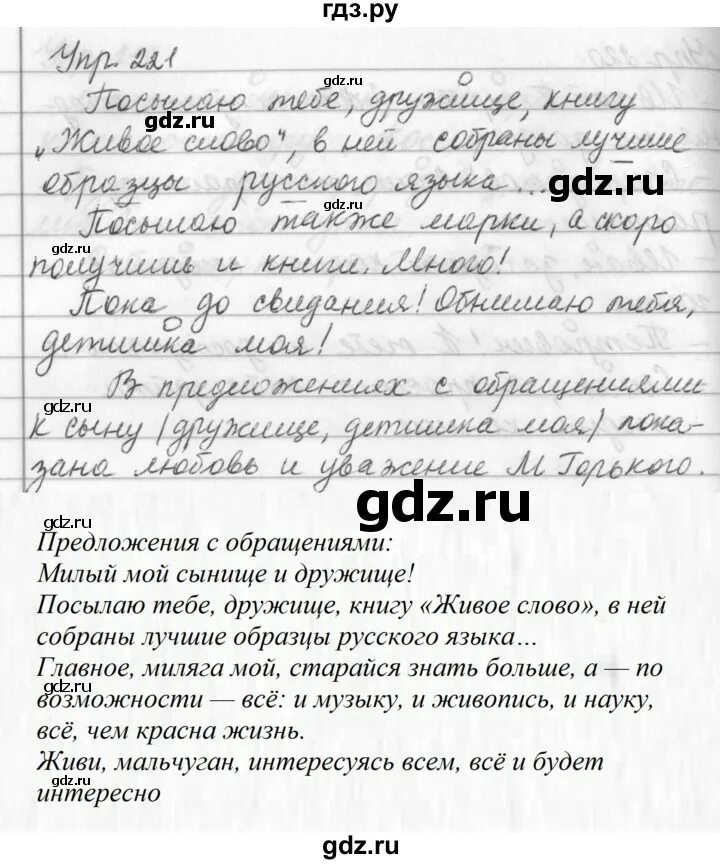 гдз.ру
Упр. 221
Посылаю тебе, дружище, книгу
gdz.ru
„Живое слово“, в ней собраны лучшие
gdz.ru
образцы русского языка...
gdz.ru
Посылаю также марки, а скоро
gdz.ru
получишь и книги. Много!
Пока до свидания! Обнимаю тебя,
gdz.ru
детишка моя!
В предложениях с обращениями
gdz.ru
к сыну (дружище, детишка моя) пока-
зана любовь и уважение М Горького.
gdz.ru
gdz.ru
gdz.ru
Предложения с обращениями:
Милый мой сынище и дружище!
Посылаю тебе, дружище, книгу «Живое слово», в ней
собраны лучшие образцы русского языка…
Главное, миляга мой, старайся знать больше, а — по
gdz.ru
возможности — всё: и музыку, и живопись, и науку,
всё, чем красна жизнь.
Живи, мальчуган, интересуясь всем, всё и будет
gdz.ru
интересно
gdz.ru